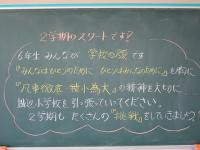 ２学期のスタートです！
６年生 みんなが 学校の顔 です
『みんなはひとりのために ひとりはみんなのために』を胸に
『凡事徹底 積小為大』の精神を大切に
小学校を引っ張っていってください。
２学期も たくさんの "挑戦" をしていきましょう？